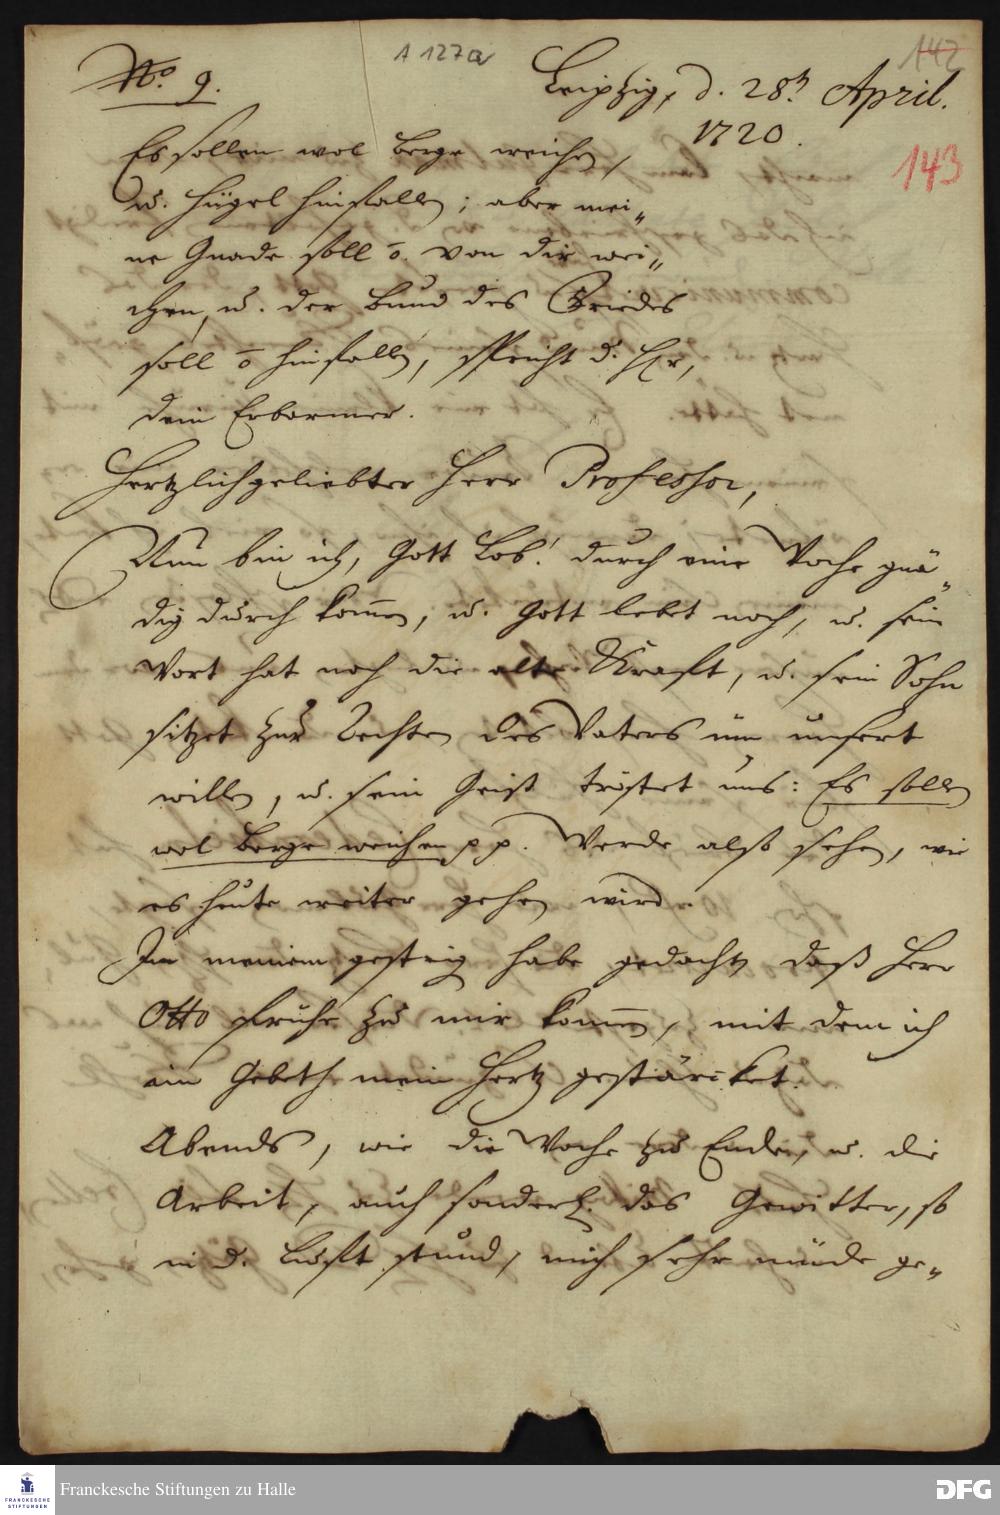 No. 9.
A 127a
142
Leipzig, d. 28t April.
1720.
143
Es sollen wol Berge weichen,
u. Hügel hinfallen; aber mei„
ne Gnade soll õ. von dir wei„
chen, u. der Bund des Friedes
soll õ hinfallen, spricht d. HEr,
dein Erbarmer.
Hertzlichgeliebter Herr Professor,
Nun bin ich, Gott Lob! durch eine Woche gnä„
dig durch kom̅en, u. Gott lebt noch, u. sein
Wort hat noch die alte Krafft, u. sein Sohn
sitzet zur Rechten des Vaters üm unsert
willen, u. sein Geist tröstet uns: Es sollen
wol Berge weichen pp. Werde also sehen, wie
es heute weiter gehen wird.
In meinem gestrig habe gedacht, daß Herr
Otto frühe zu mir kom̅en, mit dem ich
im Gebeth mein Hertz gestärcket.
Abends, wie die Woche zu Ende, u. die
Arbeit, auch sonderl. das Gewitter, so
in d. Lufft stund, mich sehr müde ge„
Franckesche Stiftungen zu Halle
FRANCKESCHE
STIFTUNGEN
DFG